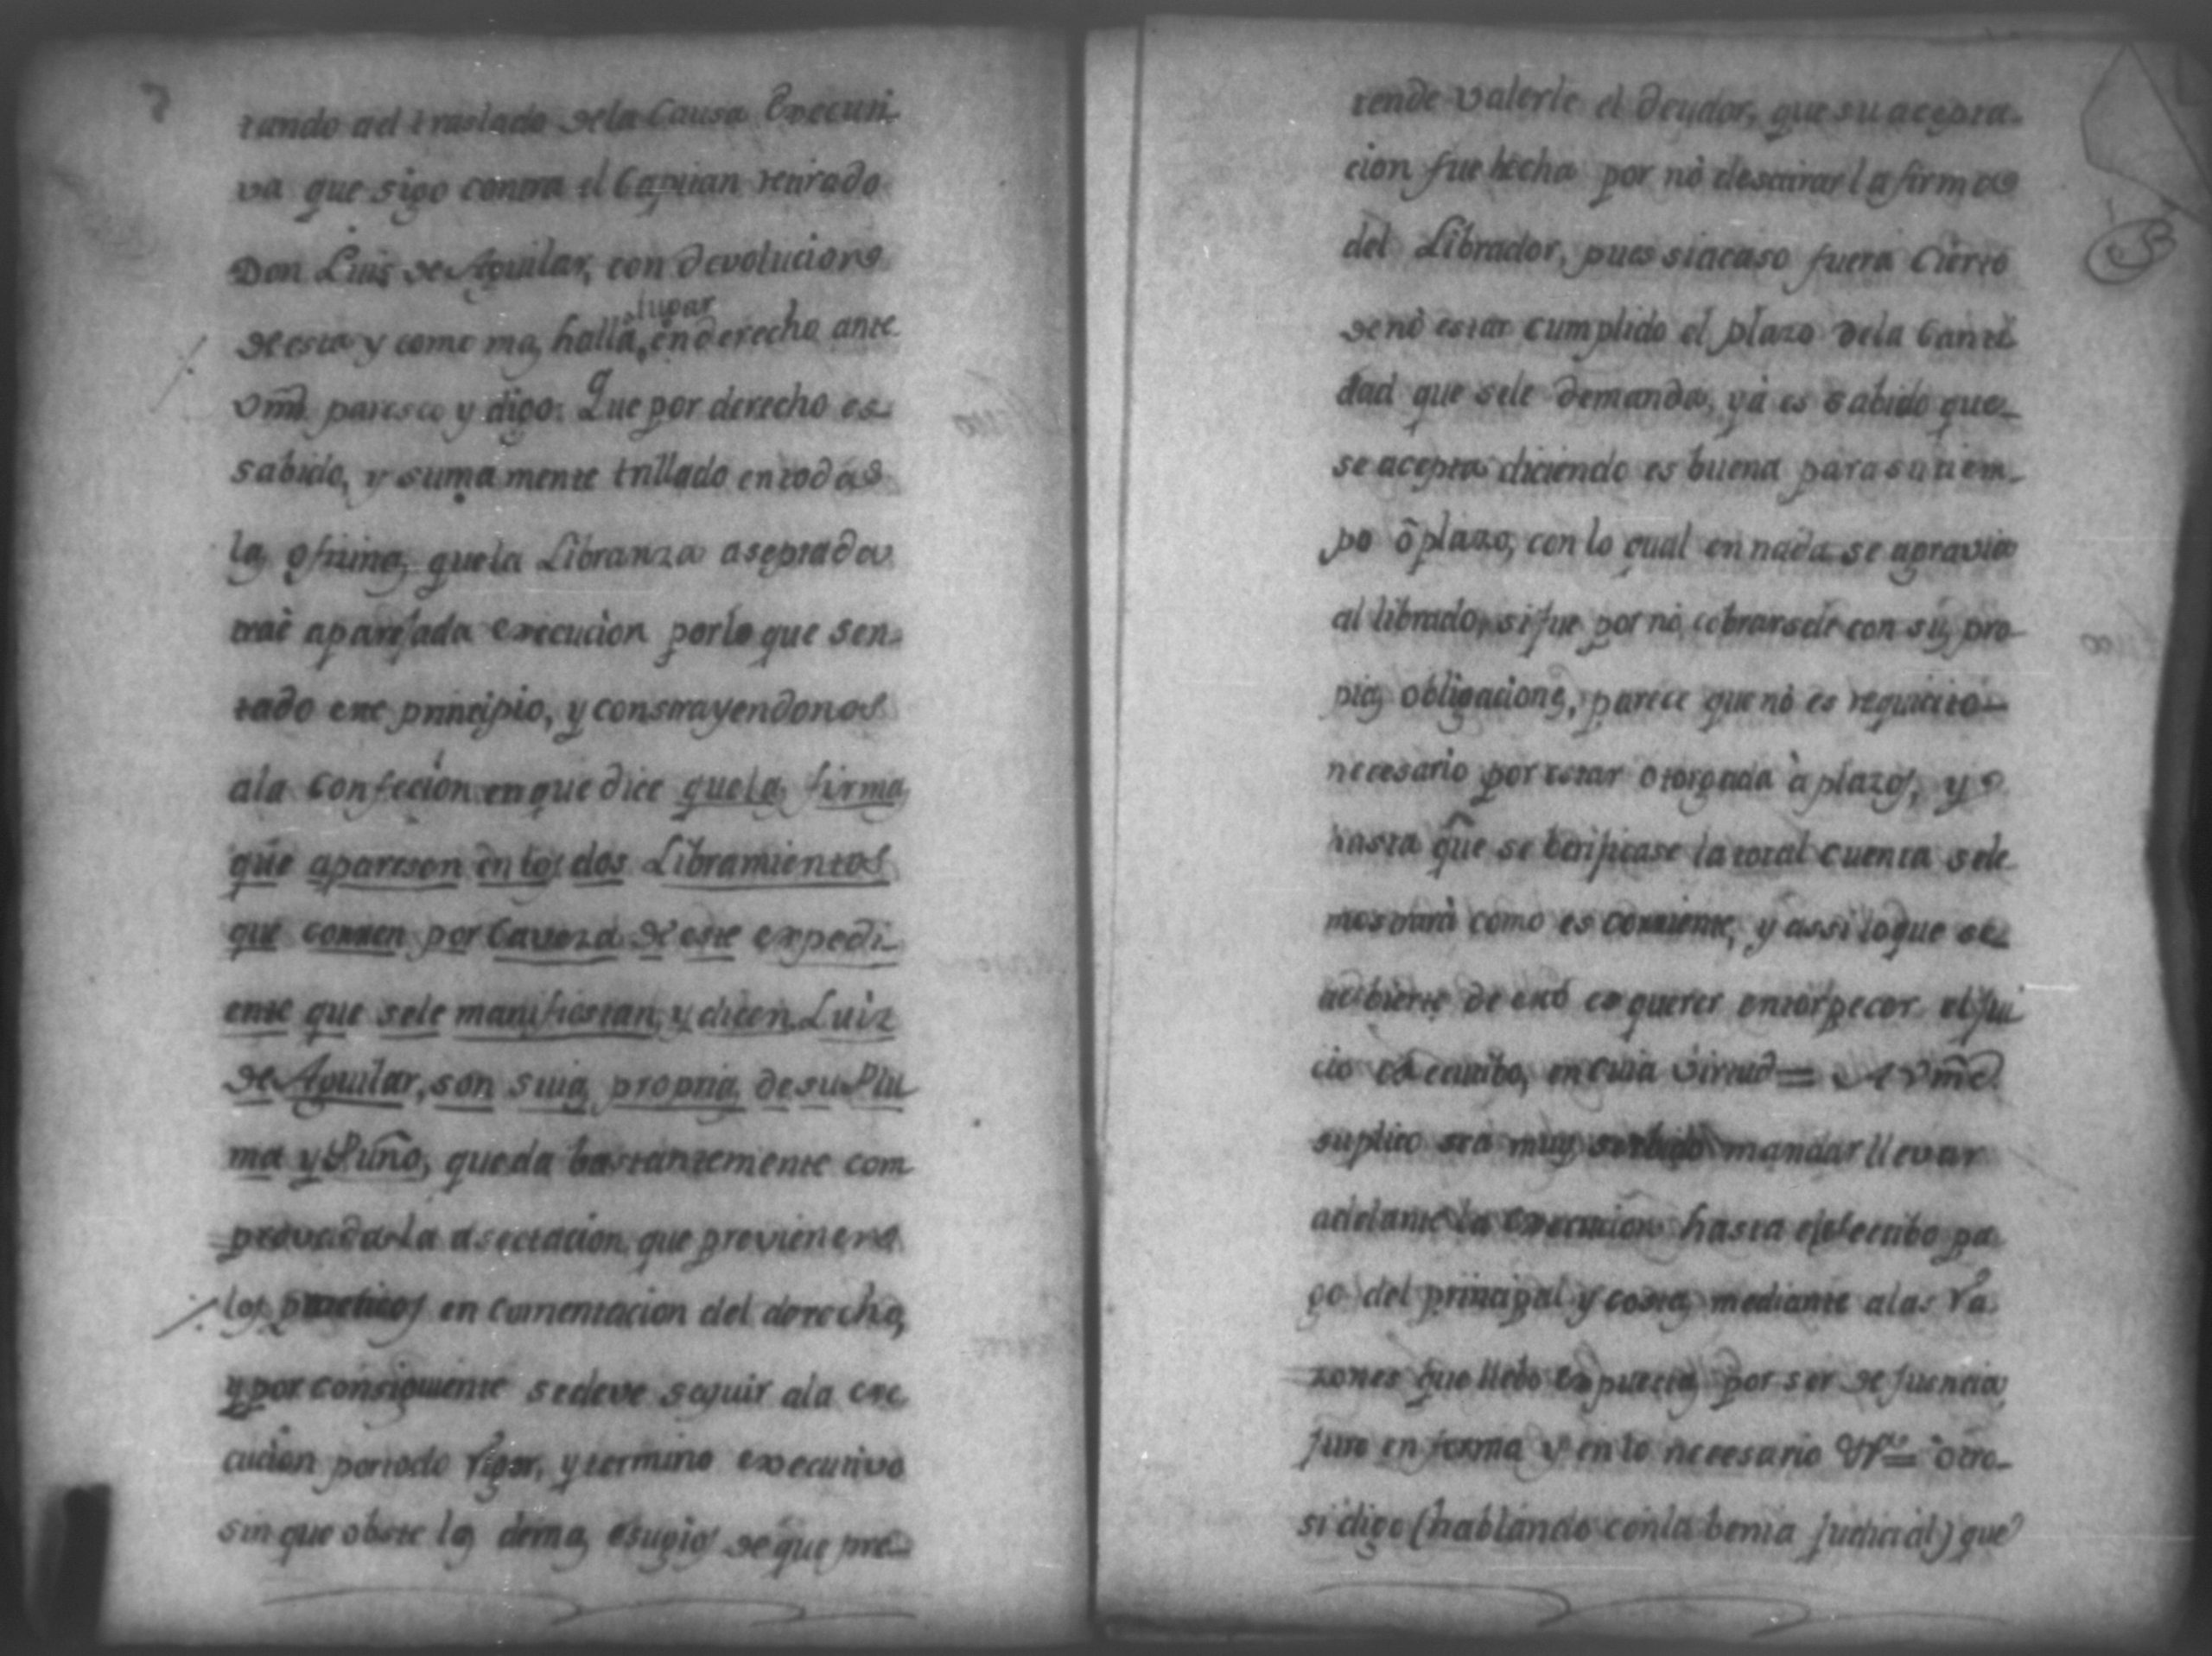 tando ael traslado dela Causa Executi-
va que sigo contra el Capitan retirado
Don Luis de Aguilar, con devolucion
de esta y como mas halla lugar en derecho ante
Vmd. paresco y digo: Que por derecho es
sabido, y sumamente trillado en todas
las ofisinas que la Libranza aseptada
traè aparejada execucion por lo que sen-
tado este principio, y constrayendonos
ala Confecion en que dice que las firmas
que aparesen en los dos Libramientos
que corren por Caveza de este expedi-
ente que sele manifiestan, y dicen Luiz
de Aguilar, son suias propias de su Plu-
ma y Puño, queda bastantemente com
provada la asectacion que previenen
los practicos en comentacion del derecho,
y por consiguiente se deve seguir ala exe-
cucion por todo rigor, y termino executivo
sin que obste las demas esugios de que pre-
tende valerse el Deudor, que su acepta-
cion fue hecha por nò desairar la firma
del Librador, pues si acaso fuera Cierto
de nò estar cumplido el plazo dela Canti-
dad que sele demanda, yà es sabido que
se acepta diciendo es buena para su tiem-
po ô plazo, con lo qual en nada se agravia
al librado, si fue por nò cobrarsele con sus pro-
pias obligaciones, parece que nò es requicito
necesario por estar otorgada à plazos, y
hasta que se berificase la total cuenta sele
mostrarà como es corriente, y assi lo que se
adbierte de esto es querer entorpecer el Jui-
cio executibo, en cuia virtud = A Vmd.
suplico sea muy serbido mandar llevar
adelante la execucion hasta el efectibo pa-
go del principal y costas mediante alas ra-
zones que llebo expuestas por ser de Justicia,
Juro en forma y en lo necesario Vt.a = otro-
si digo (hablando con la benia Judicial) que